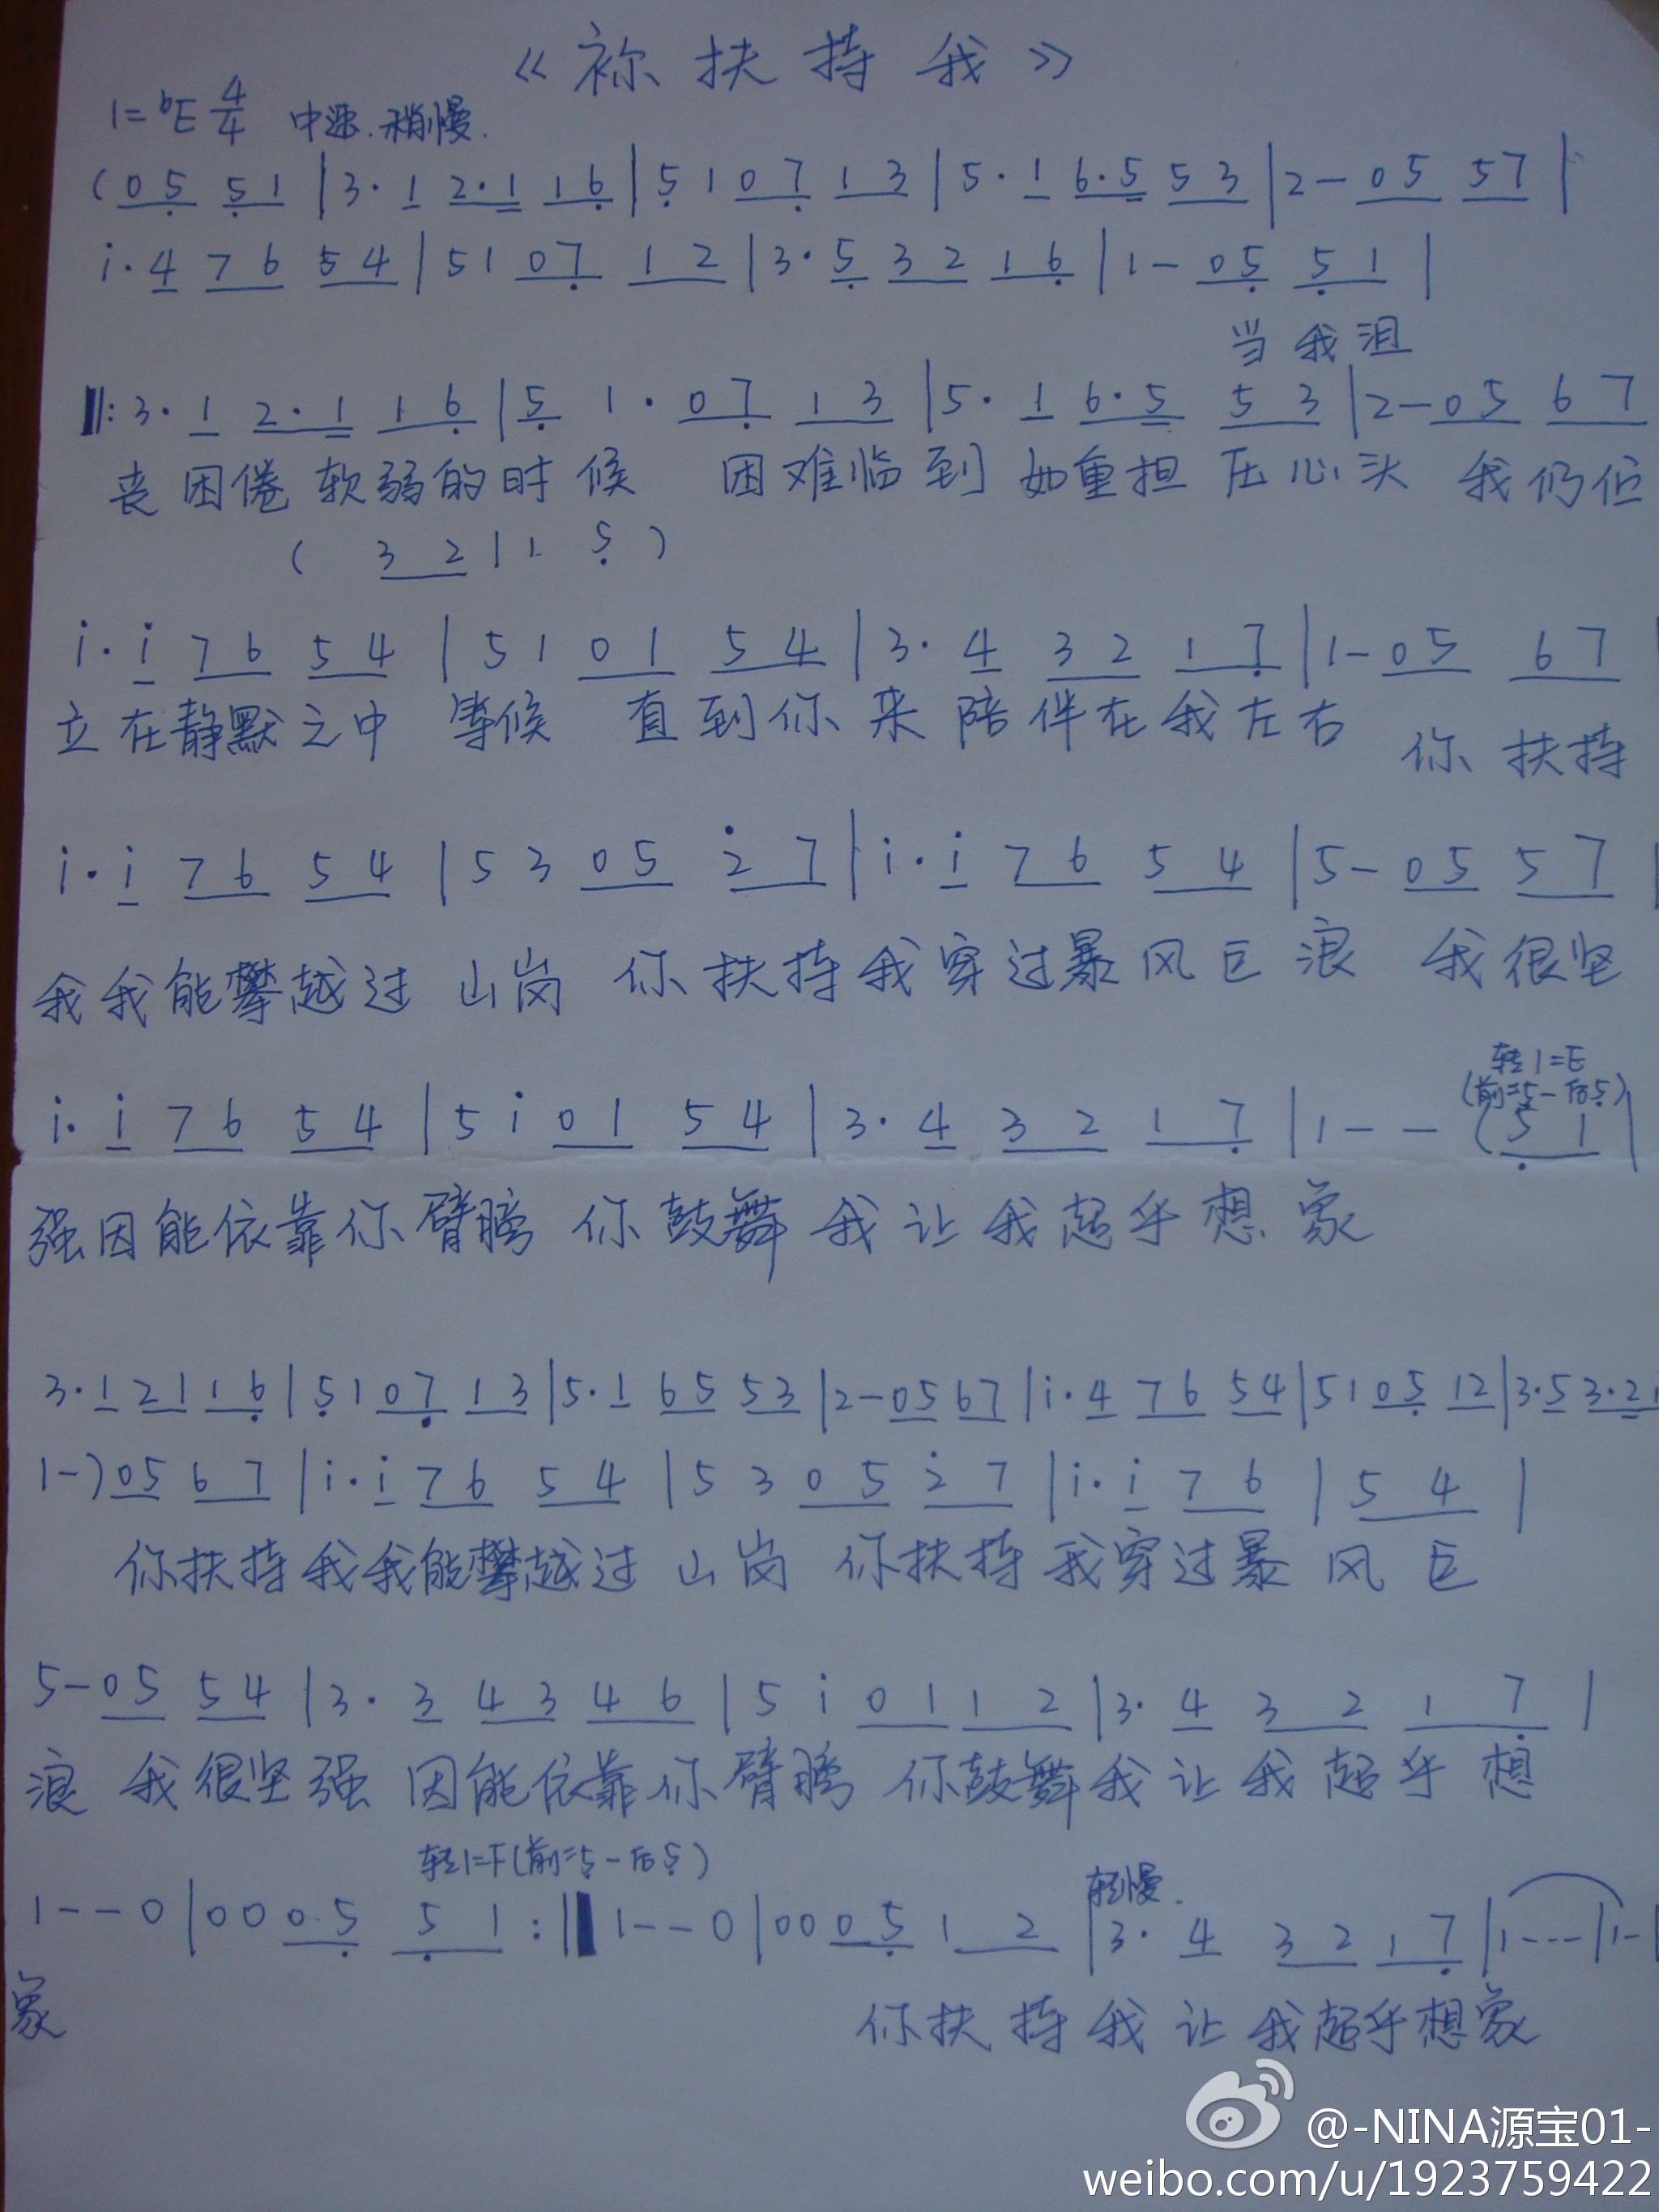 《祢扶持我》
1=ᵇE 4/4 中速.稍慢.
(0 5̣ 5̣ 1 | 3· 1 2·1 1 6̣ | 5̣ 1 0 7̣ 1 3 | 5· 1 6·5 5 3 | 2 - 0 5 5 7 |
i· 4 7 6 5 4 | 5 1 0 7̣ 1 2 | 3· 5̣ 3 2 1 6̣ | 1 - 0 5̣ 5̣ 1 |
当我沮
‖: 3· 1 2·1 1 6̣ | 5̣ 1· 0 7̣ 1 3 | 5· 1 6·5 5 3 | 2 - 0 5 6 7
丧困倦软弱的时候 困难临到如重担压心头 我仍伫
( 3 2 | 1· 5̣ )
i· i 7 6 5 4 | 5 1 0 1 5 4 | 3· 4 3 2 1 7̣ | 1 - 0 5 6 7 |
立在静默之中 等候 直到你来陪伴在我左右 你扶持
i· i 7 6 5 4 | 5 3 0 5 2̇ 7 | i· i 7 6 5 4 | 5 - 0 5 5 7 |
我我能攀越过 山岗 你扶持我穿过暴风巨浪 我很坚
转1=E
(前=5-后5̣)
i· i 7 6 5 4 | 5 i 0 1 5 4 | 3· 4 3 2 1 7̣ | 1 - - (5̣ 1 |
强因能依靠你臂膀 你鼓舞我让我超乎想象
3· 1 2 1 1 6̣ | 5̣ 1 0 7̣ 1 3 | 5· 1 6 5 5 3 | 2 - 0 5 6 7 | i· 4 7 6 5 4 | 5 1 0 5̣ 1 2 | 3· 5 3·2 1
1 - ) 0 5 6 7 | i· i 7 6 5 4 | 5 3 0 5 2̇ 7 | i· i 7 6 | 5 4 |
你扶持我我能攀越过 山岗 你扶持我穿过暴风巨
5 - 0 5 5 4 | 3· 3 4 3 4 6 | 5 i 0 1 1 2 | 3· 4 3 2 1 7̣ |
浪 我很坚强 因能依靠你臂膀 你鼓舞我让我超乎想
转1=F(前=5-后5̣)
转慢.
1 - - 0 | 0 0 0 5̣ 5̣ 1 :‖ 1 - - 0 | 0 0 0 5̣ 1 2 | 3· 4 3 2 1 7̣ | 1 - - - | 1 - |
象
你扶持我让我超乎想象
@-NINA源宝01-
weibo.com/u/1923759422